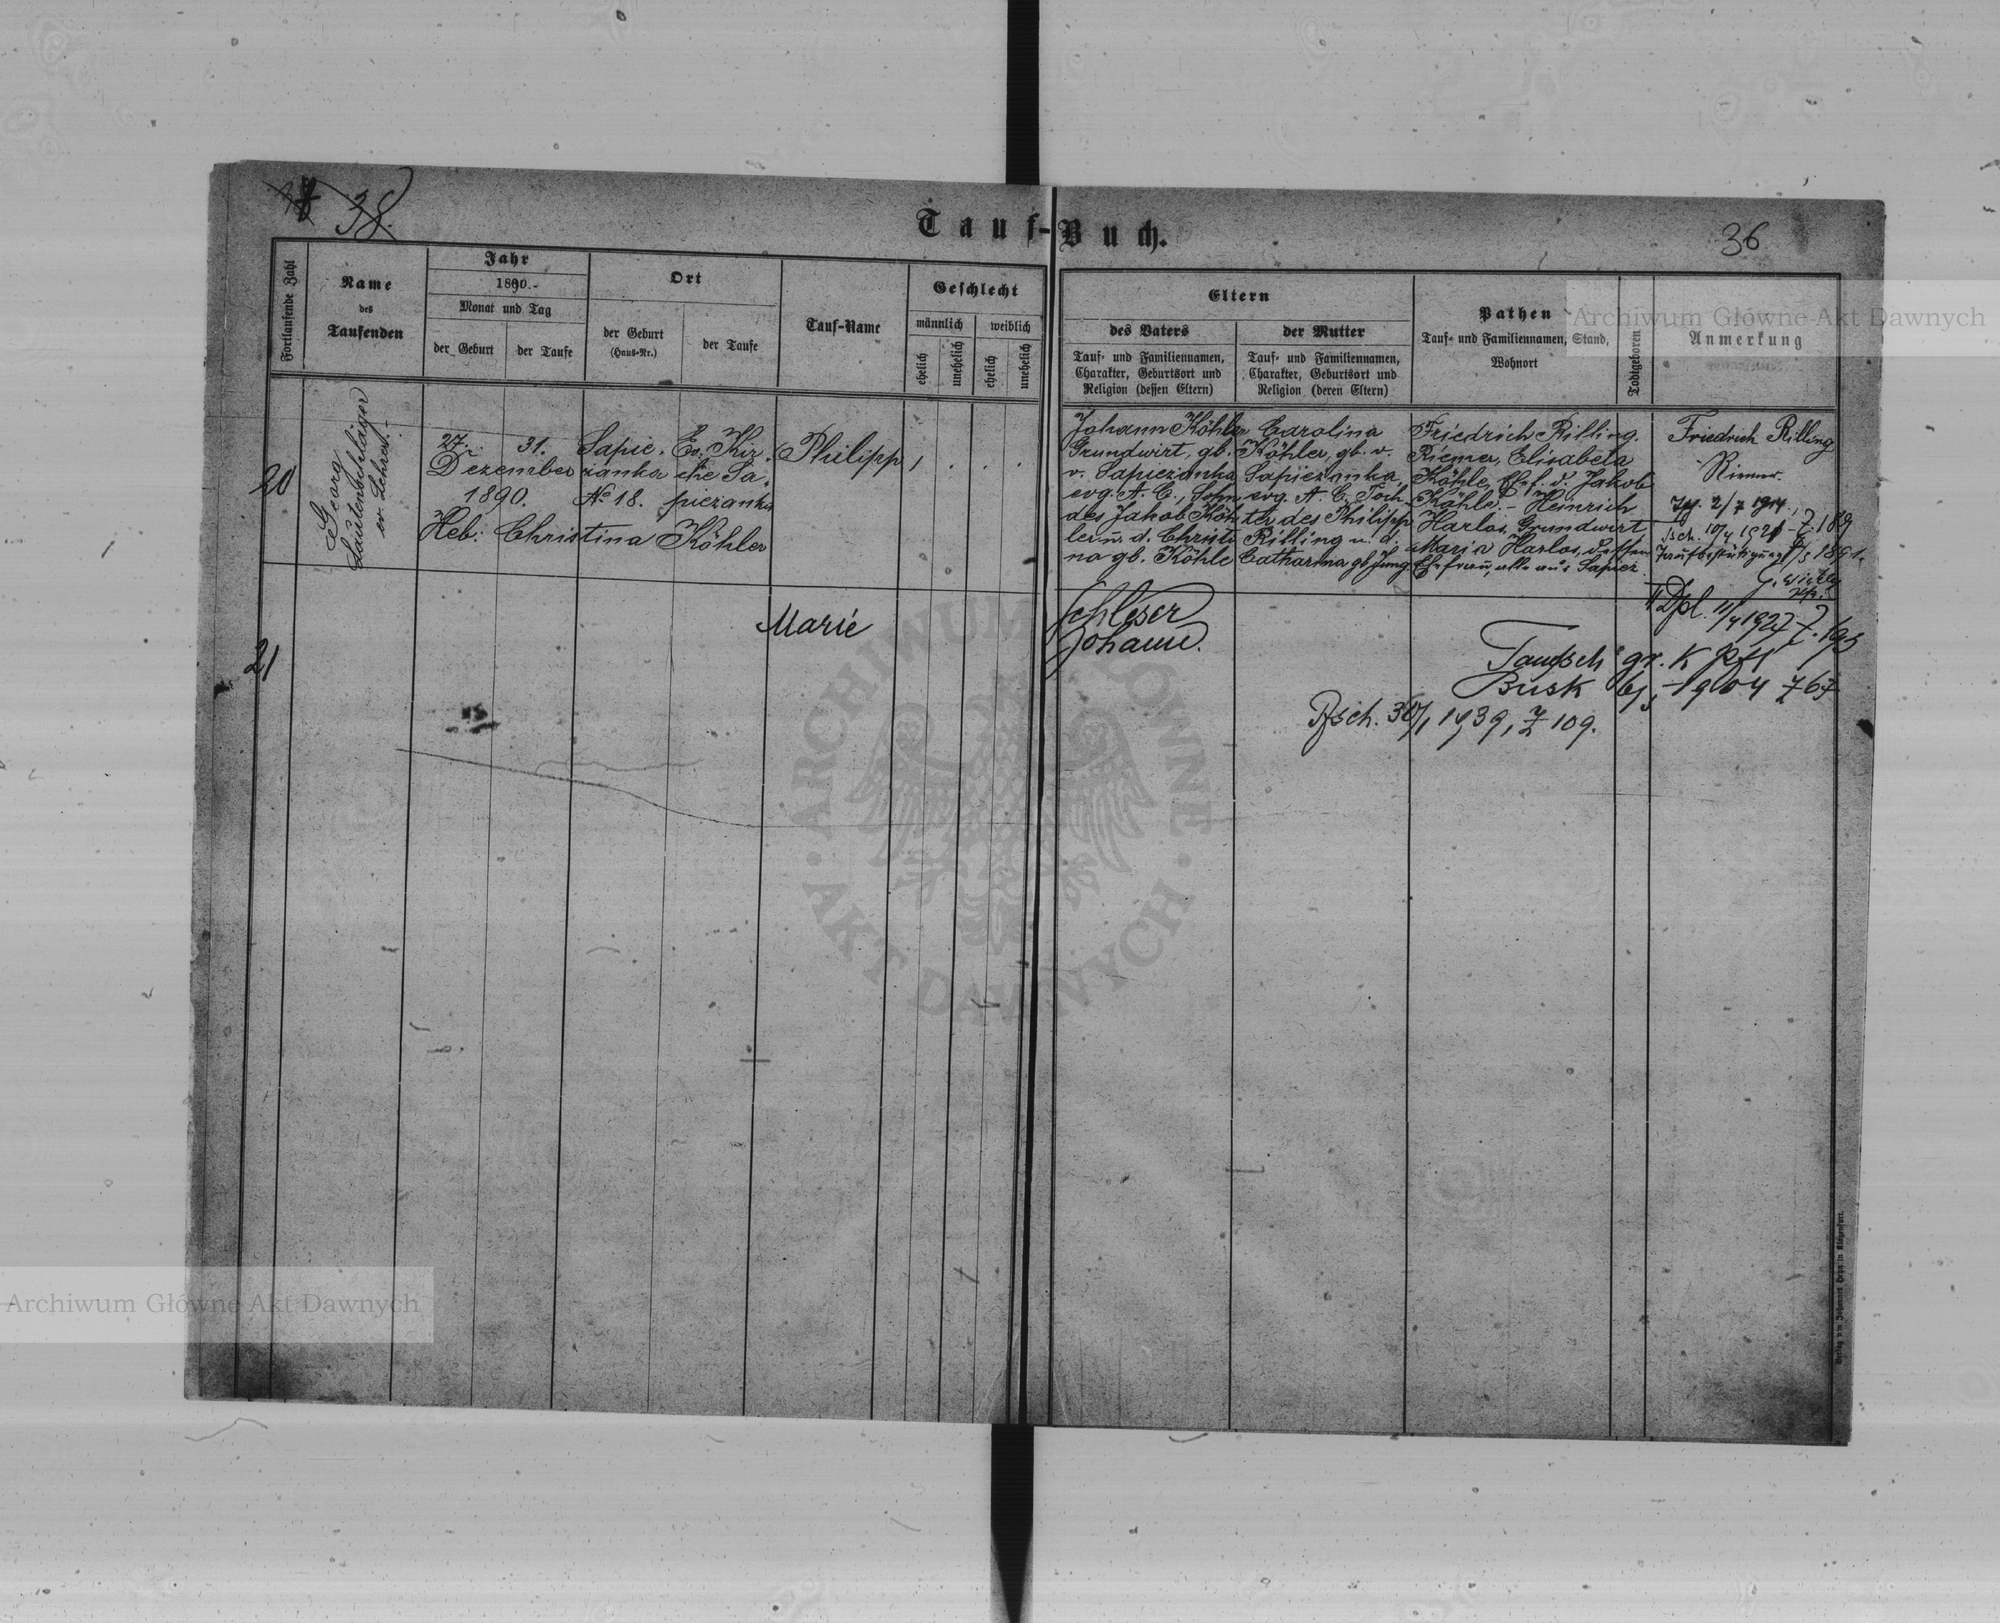 38.
Tauf-Buch.
36
Fortlaufende Zahl
Name
des
Taufenden
Jahr
1890.-
Monat und Tag
der Geburt
der Taufe
Ort
der Geburt
(Haus-Nr.)
der Taufe
Tauf-Name
Geschlecht
männlich
weiblich
ehelich
unehelich
ehelich
unehelich
Eltern
des Vaters
Tauf- und Familiennamen,
Charakter, Geburtsort und
Religion (dessen Eltern)
der Mutter
Tauf- und Familiennamen,
Charakter, Geburtsort und
Religion (deren Eltern)
Pathen
Tauf- und Familiennamen, Stand,
Wohnort
Todtgeboren
Anmerkung
20
Georg
Lautenschläger
ev. Lehrer.-
27.
31.
Dezember
1890.
Sapie-
zanka
No 18.
Ev. Kir-
che Sa-
piezanka
Heb: Christina Köhler
Philipp
1
Johann Köhler
Grundwirt, gb.
v. Sapiezanka
evg. A. C., Sohn
des Jakob Köh-
ler u. d. Christi
na gb. Köhle
Carolina
Köhler, gb. v.
Sapiezanka,
evg. A. C. Toch-
ter des Philipp
Rilling u. d.
Catharina gb Jung
Friedrich Rilling.
Riemer, Elisabeta
Köhle, Ehef. d. Jakob
Köhle.- Heinrich
Harlos, Grundwirt
Maria Harlos, dessen
Ehefrau, alle aus Sapiez.
Friedrich Rilling
Riemer.
2/7 1914
10/4 1921 Z. 189
1/5 1891.
Dpl. 11/4 1927 Z. 193
21
Marie
Schleser
Johann.
Taufsch
Busk
1904 Z 67
Tfsch. 30/1 1939, Z 109.
Verlag von Johannes Heyn in Klagenfurt.
Archiwum Główne Akt Dawnych
Archiwum Główne Akt Dawnych
· ARCHIWUM GŁÓWNE · AKT DAWNYCH